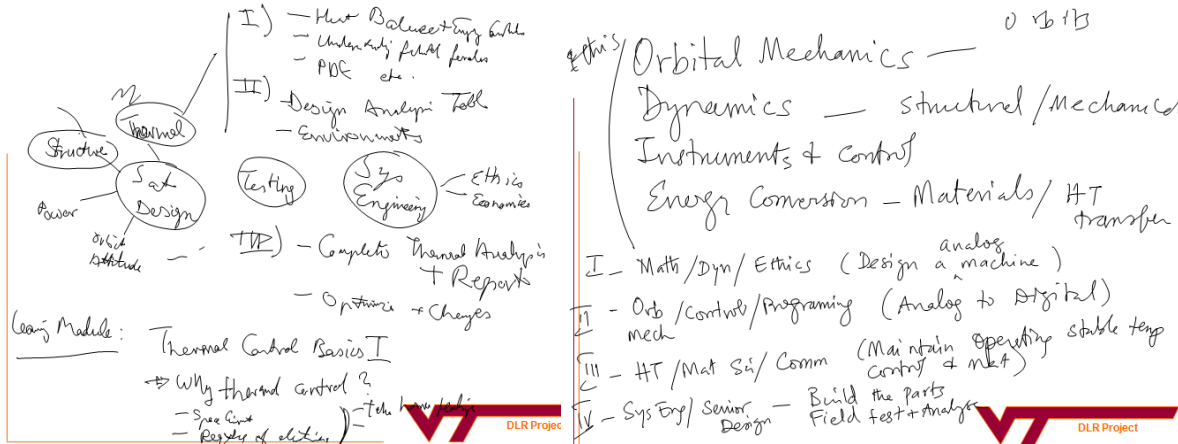 I) - Heat Balance + Engy
- Understanding
- PDE etc.
II) - Design Analysis Tools
- Environments
Thermal
Structure
Sat Design
Power
Orbit
Attitude
Testing
Sys Engineering
- Ethics
- Economics
III) - Complete Thermal Analysis
+ Reports
- Optimize + Changes
Learning Module:
Thermal Control Basics I
→ Why thermal control?
DLR Project
Orbits
Ethis
Orbital Mechanics —
Dynamics — Structural/Mechanical
Instruments & Control
Energy Conversion - Materials/HT
transfer
I - Math/Dyn/Ethics (Design a analog machine)
II - Orb/Control/Programing (Analog to Digital)
mech
III - HT/Mat Sci/Comm (Maintain operating stable temp
control & mat)
IV - Sys Eng/Senior Design - Build the parts
Field test + Analyse
DLR Project